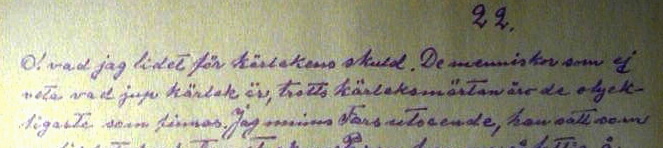 22.
O! vad jag lidet för kärlekens skuld. De menniskor som ej
veta vad jup kärlek är, trotts kärleksmärtan äro de olyck-
ligaste som finnas. Jag minns Fars utseende, han satt som